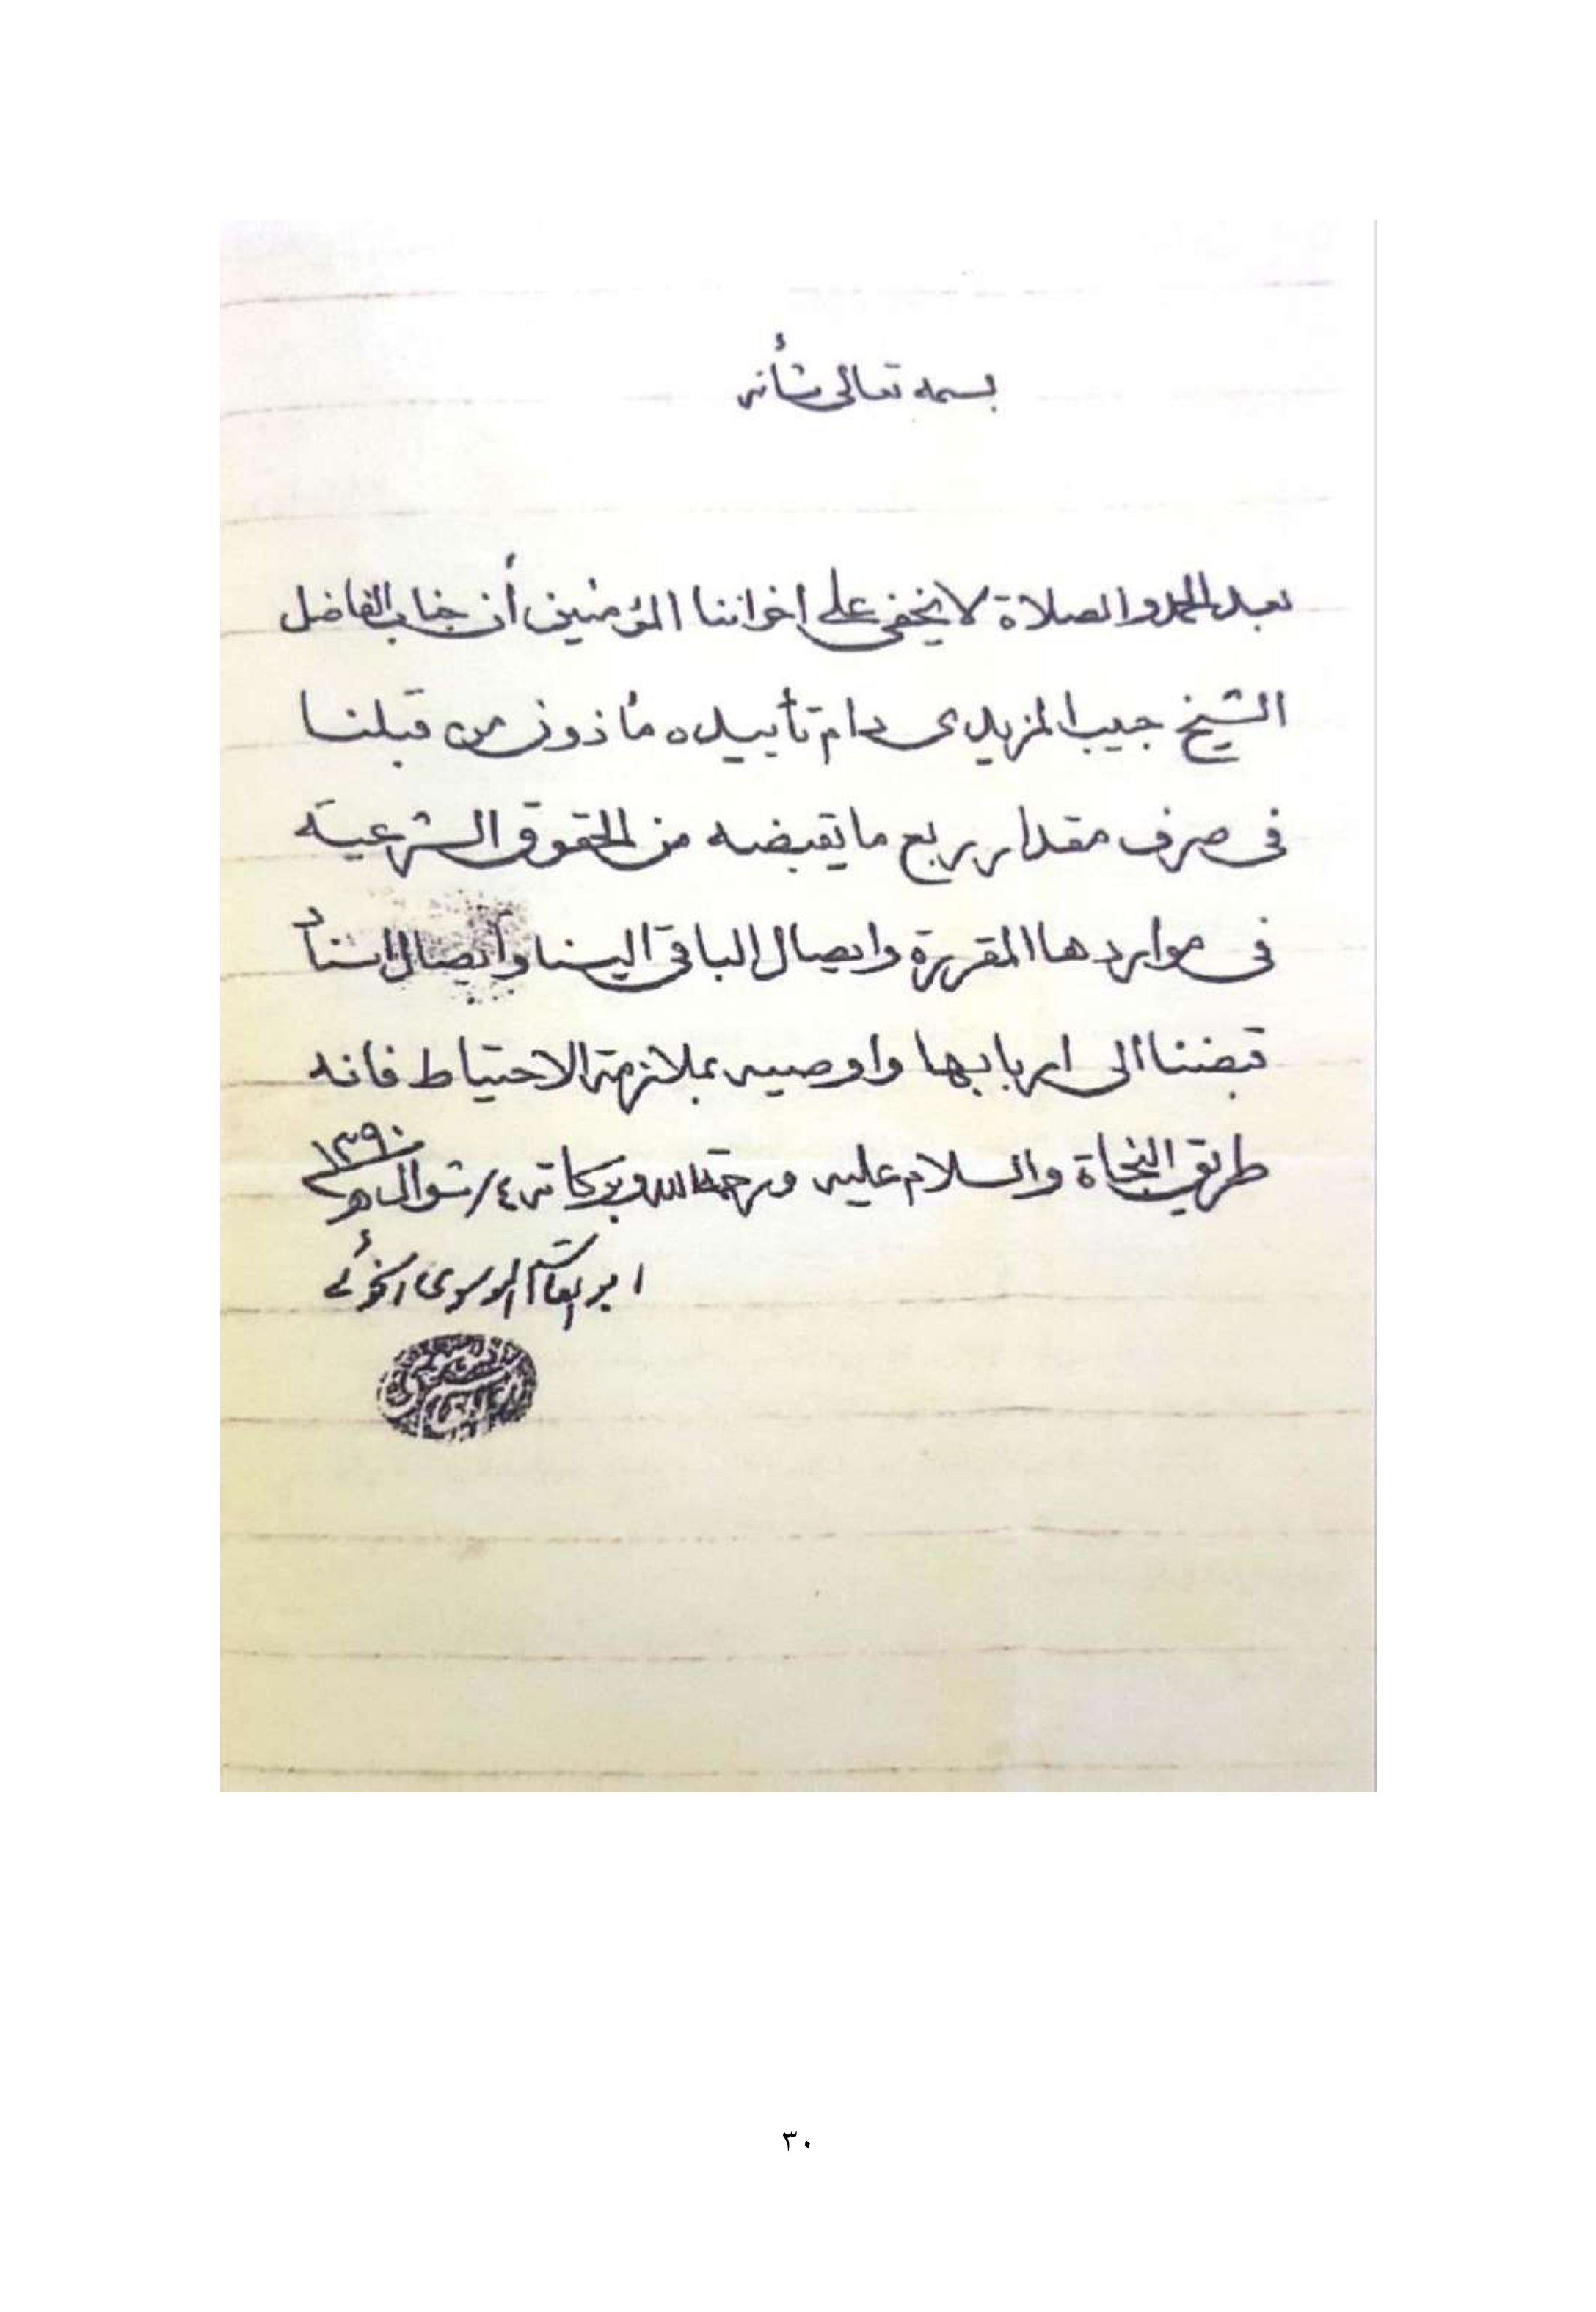 بسمه تعالى شأنه
بعد الحمد والصلاة لا يخفى على اخواننا المؤمنين أن جناب الفاضل
الشيخ حبيب المزيدي دام تأييده مأذون من قبلنا
في صرف مقدار ربع ما يقبضه من الحقوق الشرعية
في مواردها المقررة وايصال الباقي الينا وايصال
قبضنا الى اربابها واوصيه بملازمة الاحتياط فانه
طريق النجاة والسلام عليه ورحمة الله وبركاته ٤/ شوال ١٣٩٠ هـ
ابو القاسم الموسوي الخوئي
٣٠